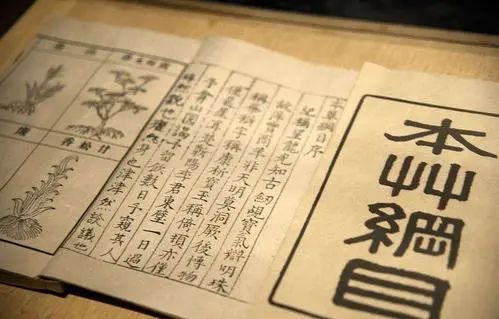 本艸綱目
本草綱目序
紀稱望龍光知古劍覘寶氣辯明珠
故萍實商羊非天明莫洞厥後博物
稱華辯字稱康析寶玉稱倚頓亦僅
晨星耳楚蘄陽李君東璧一日過
予弇山園謁予留飲數日予窺其人
睟然貌也癯然身也津津然談議也
甘松香